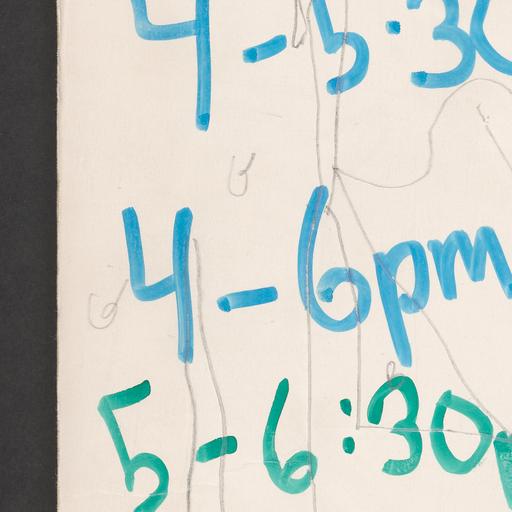 4-5:30
4-6pm
5-6:30